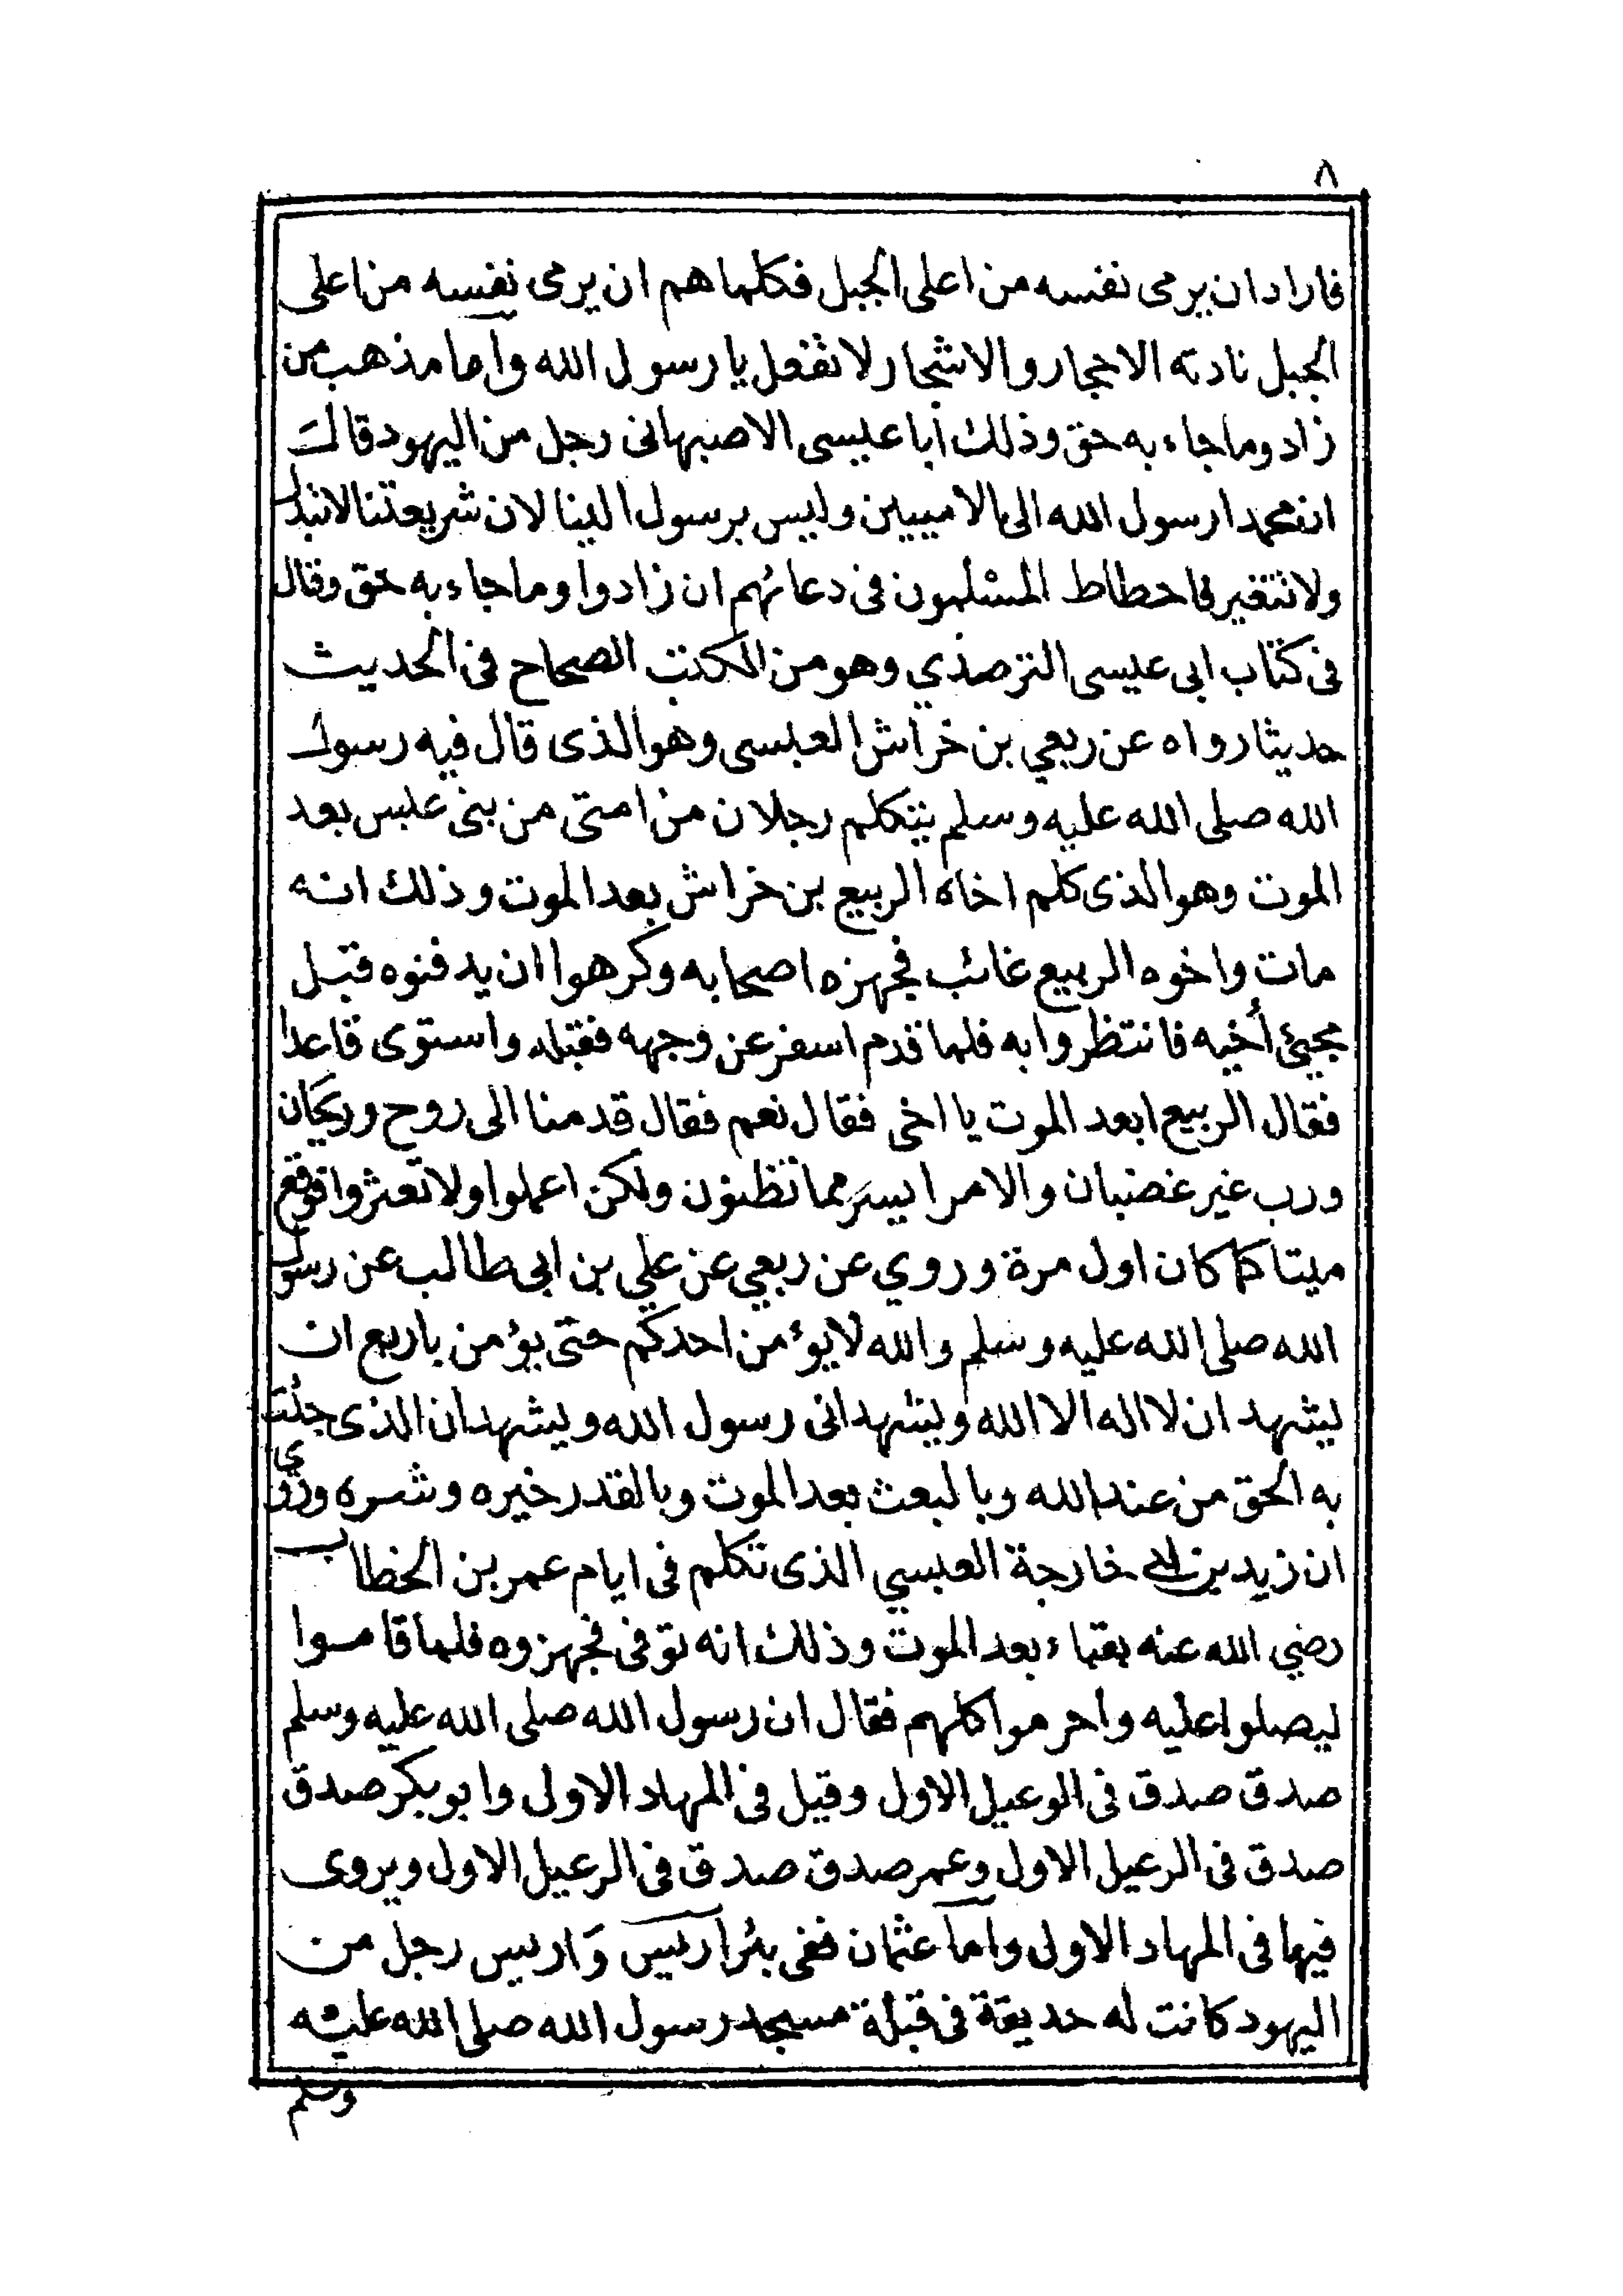 ٨
فاراد ان يرمى نفسه من اعلى الجبل فكلما هم ان يرمى نفسه من اعلى
الجبل نادته الاحجار والاشجار لا تفعل يا رسول الله واما مذهب من
زاد وما جاء به حق وذلك ابا عيسى الاصبهانى رجل من اليهود قال
ان محمدا رسول الله الى الاميين وليس برسول الينا لان شريعتنا لا تبدل
ولا تتغير فاحطاط المسلمون فى دعائهم ان زادوا وما جاء به حق وقال
فى كتاب ابى عيسى الترمذي وهو من الكتب الصحاح فى الحديث
حديثا رواه عن ربعي بن خراش العبسى وهو الذى قال فيه رسول
الله صلى الله عليه وسلم يتكلم رجلان من امتى من بنى عبس بعد
الموت وهو الذى كلم اخاه الربيع بن خراش بعد الموت وذلك انه
مات واخوه الربيع غائب فجهزه اصحابه وكرهوا ان يدفنوه قبل
مجيئ أخيه فانتظروا به فلما قدم اسفر عن وجهه فقبله واستوى قاعدا
فقال الربيع ابعد الموت يا اخى فقال نعم فقال قدمنا الى روح وريحان
ورب غير غضبان والامر ايسر مما تظنون ولكن اعملوا ولا تعثروا فوقع
ميتا كما كان اول مرة وروي عن ربعي عن علي بن ابى طالب عن رسول
الله صلى الله عليه وسلم والله لا يؤمن احدكم حتى يؤمن باربع ان
يشهد ان لا اله الا الله ويشهد انى رسول الله ويشهد ان الذى جئت
به الحق من عند الله وبالبعث بعد الموت وبالقدر خيره وشره وروي
ان زيد بن خارجة العبسي الذى تكلم فى ايام عمر بن الخطاب
رضي الله عنه بقباء بعد الموت وذلك انه توفى فجهزوه فلما قاموا
ليصلوا عليه واحرموا كلهم فقال ان رسول الله صلى الله عليه وسلم
صدق صدق فى الوعيل الاول وقيل فى المهاد الاول وابو بكر صدق
صدق فى الرعيل الاول وعمر صدق صدق فى الرعيل الاول ويروى
فيها فى المهاد الاول واما عثمان ففى بئر اريس وَاريس رجل من
اليهود كانت له حديقة فى قبلة مسجد رسول الله صلى الله عليه
وسلم